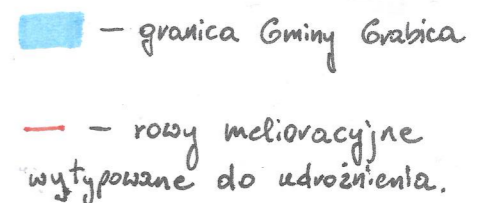 – granica Gminy Grabica
– rowy melioracyjne
wytypowane do udrożnienia.